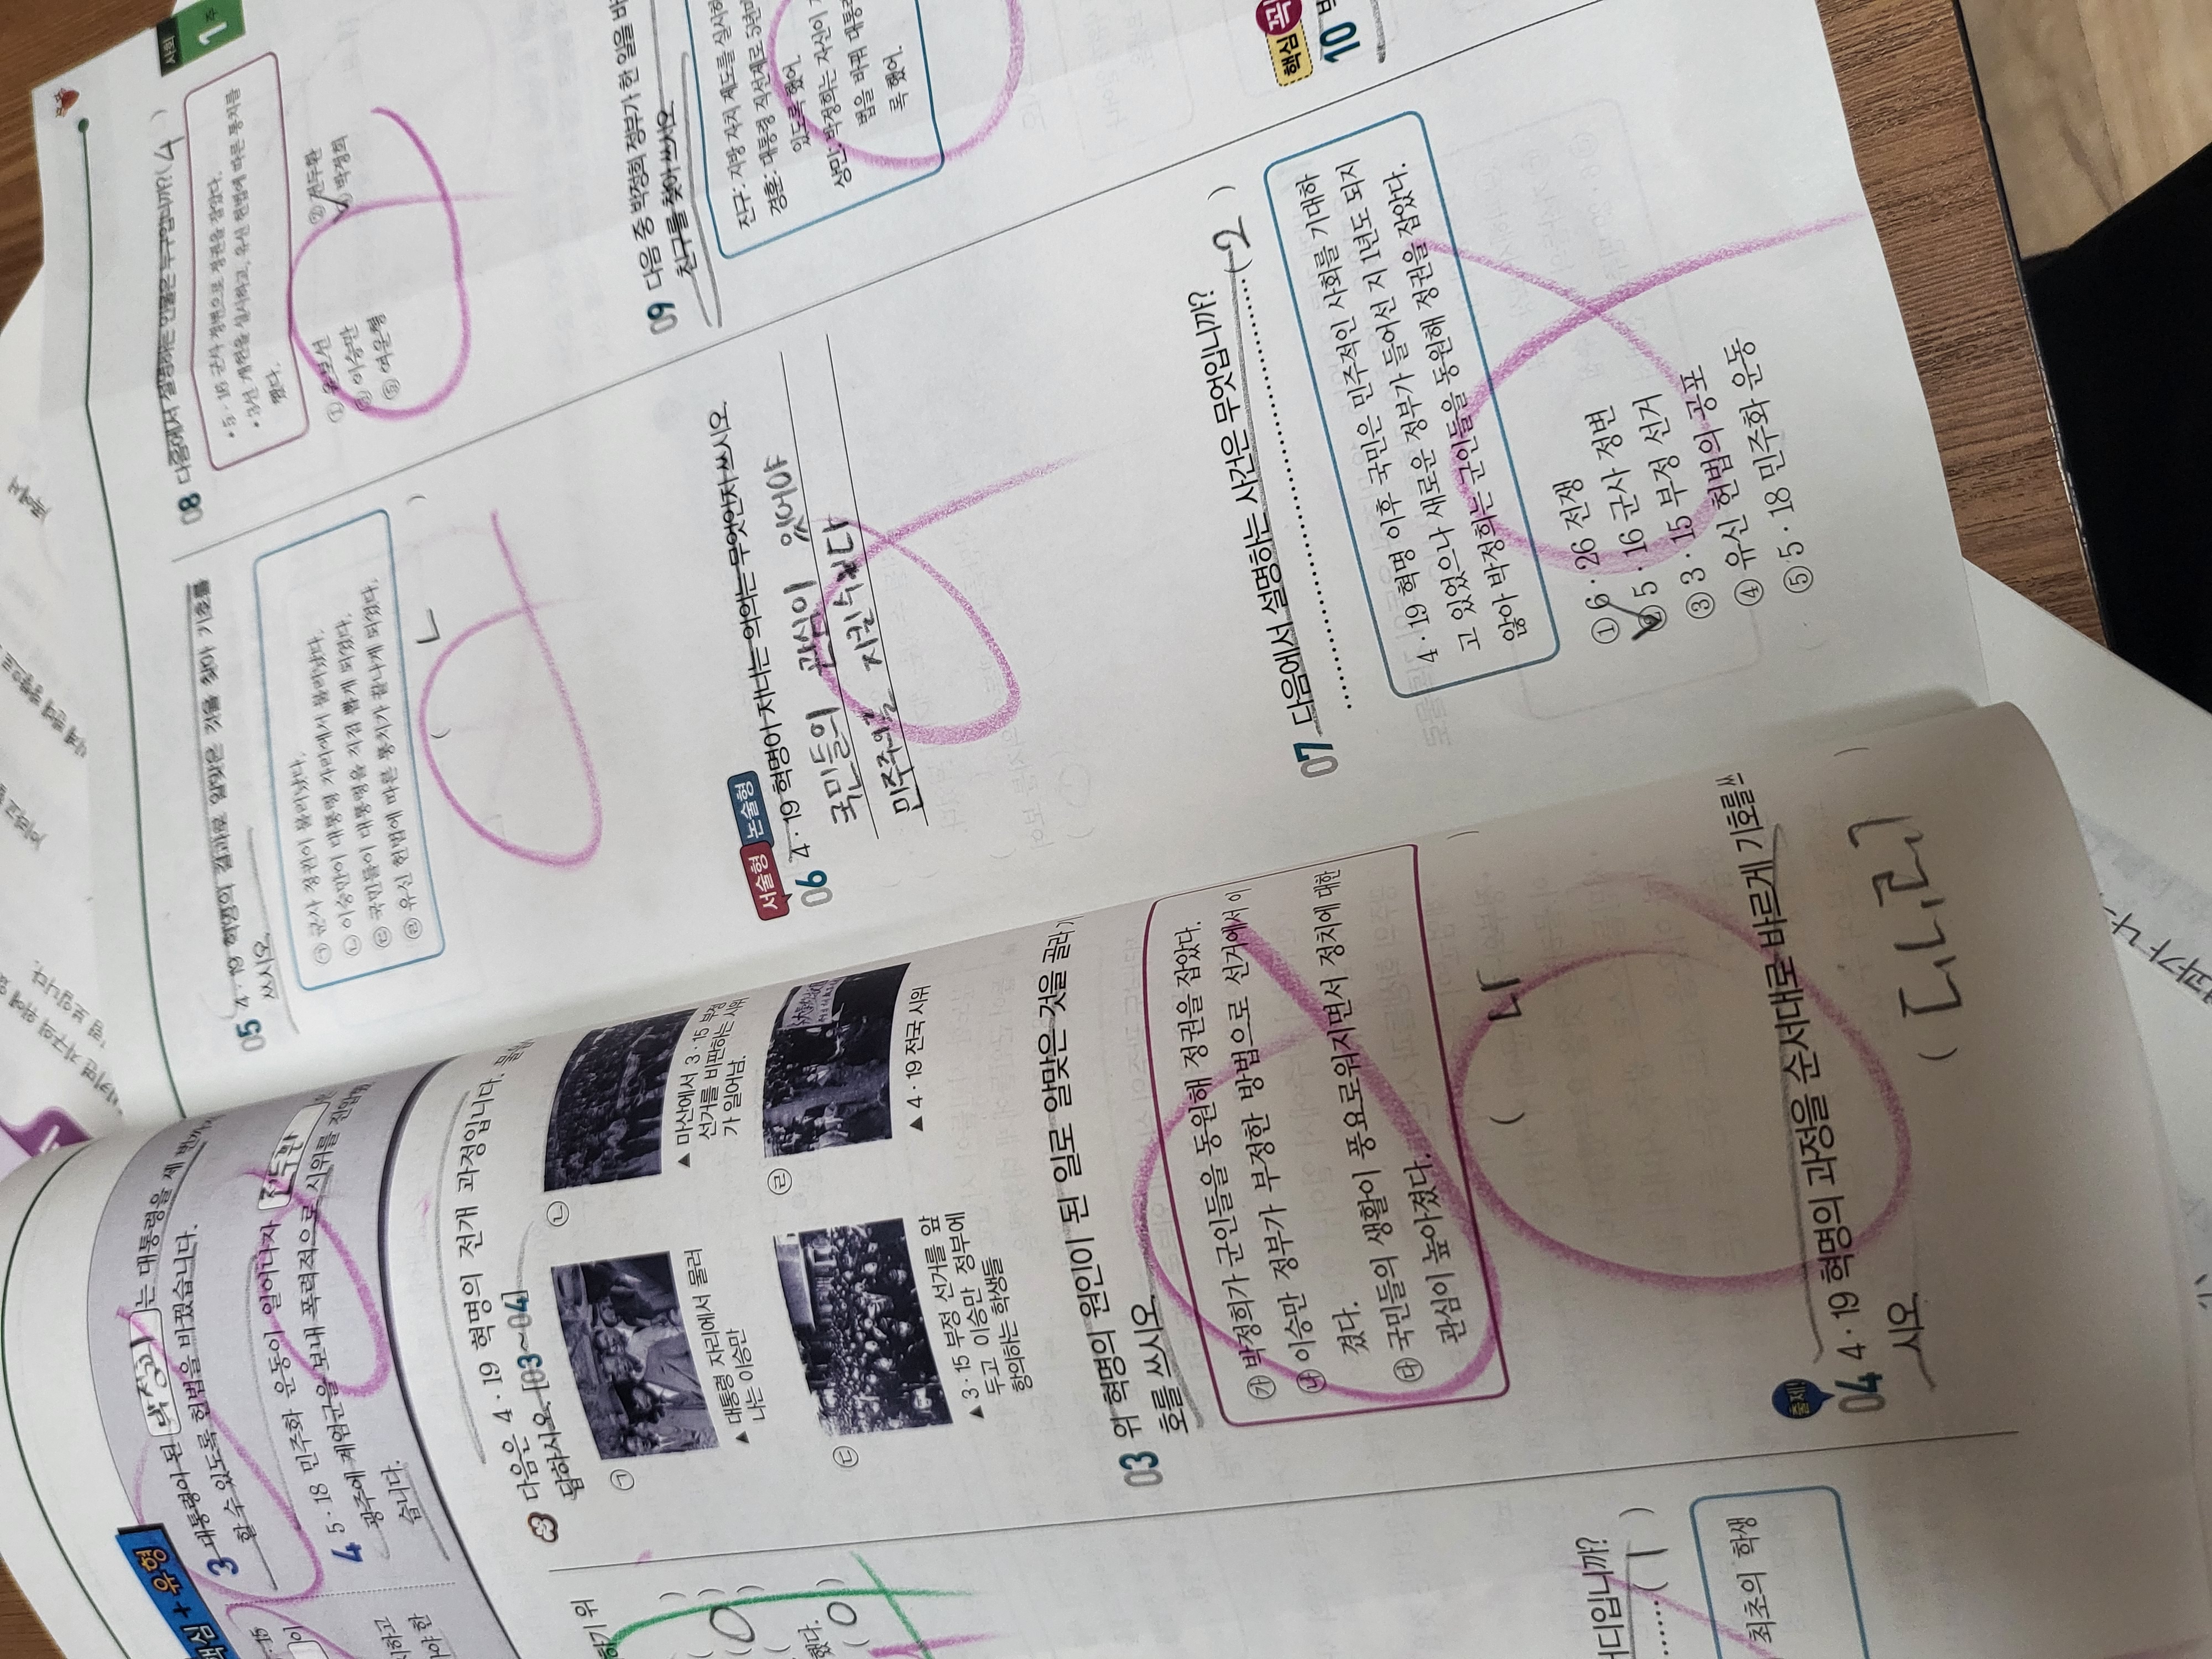 핵심 + 유형
3 대통령이 된 박정희 는 대통령을 세 번까지
할 수 있도록 헌법을 바꿨습니다.
4 5·18 민주화 운동이 일어나자 전두환 은
광주에 계엄군을 보내 폭력적으로 시위를 진압했
습니다.
다음은 4·19 혁명의 전개 과정입니다. 물음에
답하시오. [03~04]
㉠
▲ 대통령 자리에서 물러
나는 이승만
㉡
▲ 마산에서 3·15 부정
선거를 비판하는 시위
가 일어남.
㉢
▲ 3·15 부정 선거를 앞
두고 이승만 정부에
항의하는 학생들
㉣
▲ 4·19 전국 시위
03 위 혁명의 원인이 된 일로 알맞은 것을 골라 기
호를 쓰시오.
㉮ 박정희가 군인들을 동원해 정권을 잡았다.
㉯ 이승만 정부가 부정한 방법으로 선거에서 이
겼다.
㉰ 국민들의 생활이 풍요로워지면서 정치에 대한
관심이 높아졌다.
( 나 )
출제!
04 4·19 혁명의 과정을 순서대로 바르게 기호를 쓰
시오.
( ㄷㄴㄹㄱ )
05 4·19 혁명의 결과로 알맞은 것을 찾아 기호를
쓰시오.
㉠ 군사 정권이 물러났다.
㉡ 이승만이 대통령 자리에서 물러났다.
㉢ 국민들이 대통령을 직접 뽑게 되었다.
㉣ 유신 헌법에 따른 통치가 끝나게 되었다.
( ㄴ )
서술형 논술형
06 4·19 혁명이 지니는 의의는 무엇인지 쓰시오.
국민들의 관심이 있어야
민주주의를 지킬 수 있다
07 다음에서 설명하는 사건은 무엇입니까?
( 2 )
4·19 혁명 이후 국민은 민주적인 사회를 기대하
고 있었으나 새로운 정부가 들어선 지 1년도 되지
않아 박정희는 군인들을 동원해 정권을 잡았다.
① 6·26 전쟁
② 5·16 군사 정변
③ 3·15 부정 선거
④ 유신 헌법의 공포
⑤ 5·18 민주화 운동
사회
1주
08 다음에서 설명하는 인물은 누구입니까? ( 4 )
• 5·16 군사 정변으로 정권을 잡았다.
• 3선 개헌을 실시하고, 유신 헌법에 따른 통치를
했다.
① 윤보선 ② 전두환
③ 이승만 ④ 박정희
⑤ 여운형
09 다음 중 박정희 정부가 한 일을 바
친구를 찾아 쓰시오
진구: 지방 자치 제도를 실시하
경훈: 대통령 직선제로 5년마
있도록 했어.
상민: 박정희는 자신이
법을 바꿔 대통령
록 했어.
핵심 꼭
10
하기 위
했다.
디입니까?
( 1 )
최초의 학생